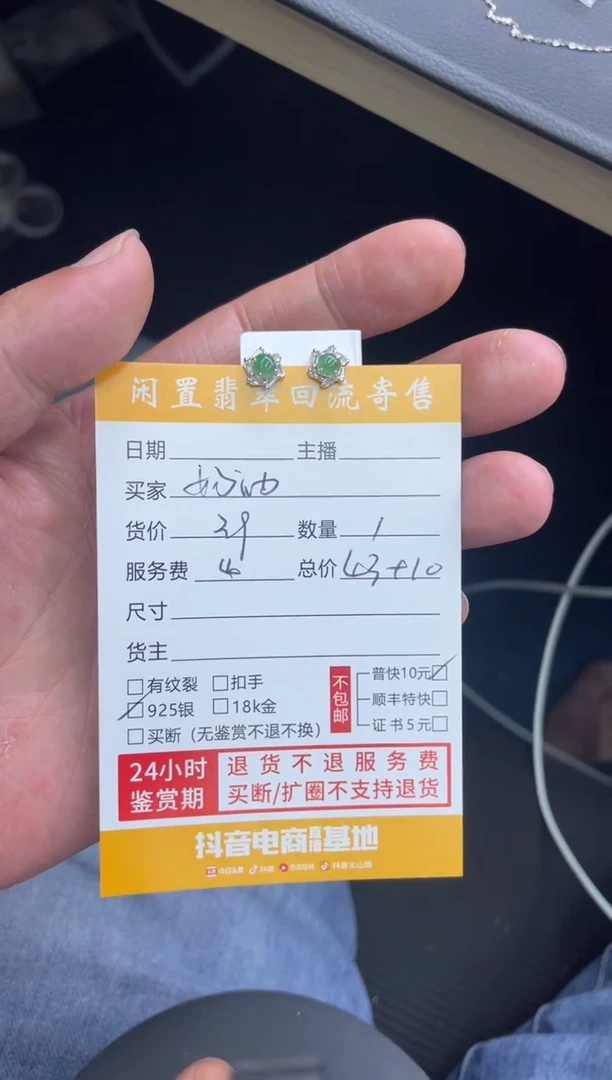 闲置翡翠回流寄售
日期 主播
买家 奶油
货价 39 数量 1
服务费 4 总价 43+10
尺寸
货主
有纹裂 扣手
925银 18k金
买断（无鉴赏不退不换）
不包邮
普快10元
顺丰特快
证书5元
24小时
鉴赏期
退货不退服务费
买断/扩圈不支持退货
抖音电商直播基地
今日头条 抖音 西瓜视频 抖音火山版